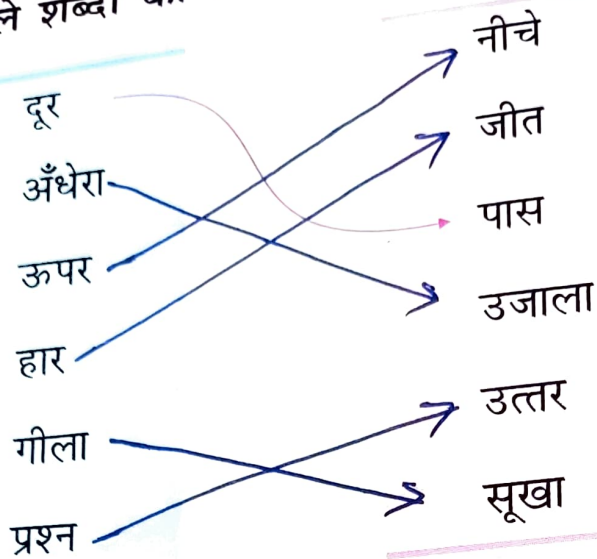 शब्दों
दूर
अँधेरा
ऊपर
हार
गीला
प्रश्न
नीचे
जीत
पास
उजाला
उत्तर
सूखा